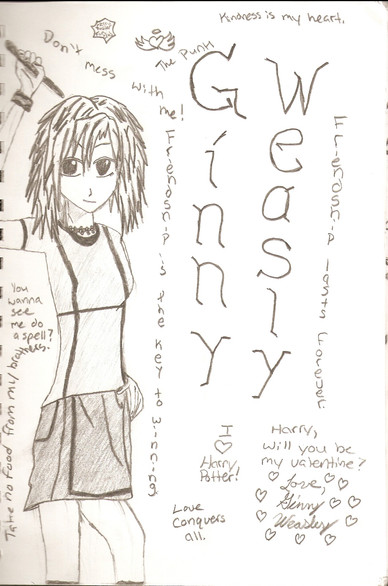 Kindness is my heart.
Don't mess with me!
The Punk
Ginny
Weasly
Friendship is the key to winning
Friendship lasts forever.
You
wanna
see
me do
a spell?
Take no food from my brothers.
I
♡
Harry
Potter!
Love
Conquers
all.
Harry,
will you be
my valentine?
Love,
Ginny
Weasley